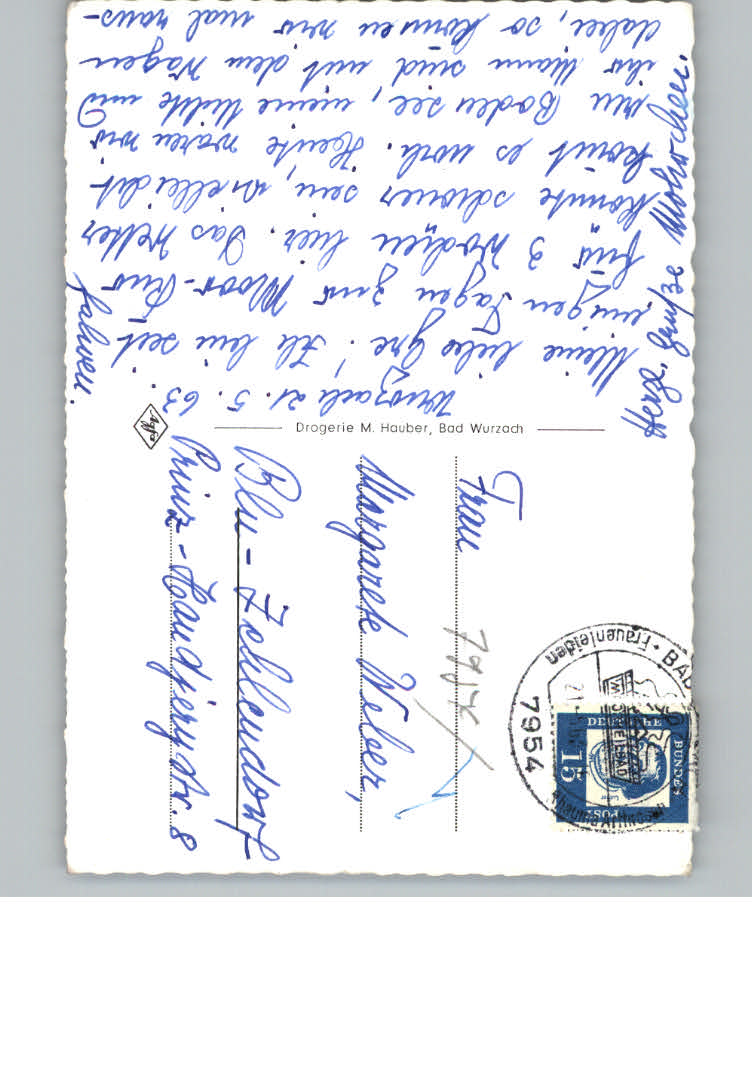 Wurzach 21. 5. 63
Meine liebe Gre! Ich bin seit
einigen Tagen zur Moor-Kur
für 3 Wochen hier. Das Wetter
könnte schöner sein, vielleicht
kommt es noch. Heute waren wir
am Boden see, meine Nichte und
ihr Mann sind mit dem Wagen
dabei, so können wir mal raus-
fahren.
Herzl. Grüße
Drogerie M. Hauber, Bad Wurzach
Agfa
Frau
Margarete Weber,
Bln - Zehlendorf
Prinz - Handjerystr. 8
7954
BAD
Frauenleiden
Rheuma Arthrosen
DEUTSCHE
BUNDES
POST
15